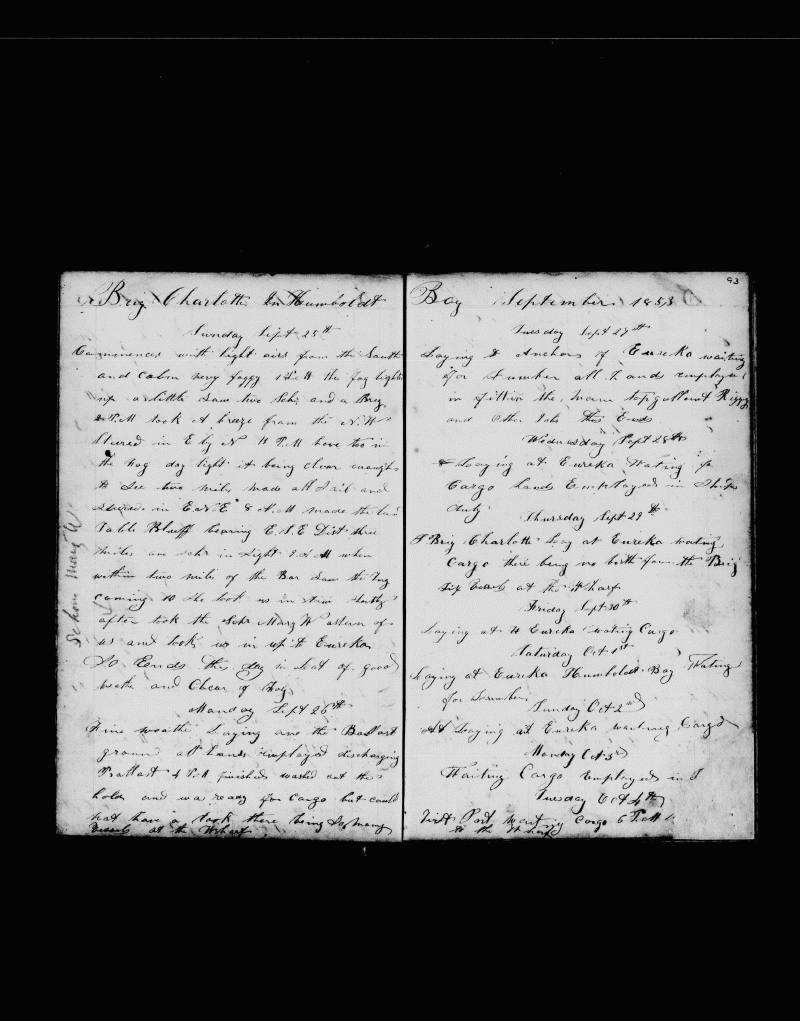 Brig Charlotte In Humboldt
Sunday Sept 25th
Commences with light airs from the South
and calm very foggy 1 P.M the fog lights
up a little saw two Schr and a Brig
2 P.M took A breze from the N.W
Stured in E by N 4 P.M hove too in
the Fog day light it being clear enough
to See two miles made all Sail and
8 A.M made the
Table Bluff bearing E.S.E Dist three
miles one Schr in Sight 9 A.M when
within two miles of the Bar Saw the Tug
coming She took us in tow Shortly
after took the Schr Mary W astern of
us and took us in up to Eureka
So Ends this day in of good
and Clear of Fog
Schon Mary W
Monday Sept 26th
Fine Laying one the Ballast
ground all hands Employed discharging
Ballast 4 P.M finished washed out the
hold and was ready for Cargo but could
not have a there being So many
Vessels at the Wharf
93
Bay September 1853
Tuesday Sept 27th
Laying at Anchor of Eureka waiting
For Lumber all hands employed
in fittin the main topgallant
and other Jobs This Ends
Wedensday Sept 28th
Laying at Eureka Wating for
Cargo hands Employed in Ships
duty
Thursday Sept 29th
Brig Charlotte Lay at Eureka wating
Cargo there being no birth for the Brig
Six Vessels at the Wharf
Friday Sept 30th
Laying at Eureka wating Cargo
Saturday Oct 1st
Laying at Eureka Humboldt Bay Wating
for Lumber
Sunday Oct 2nd
Laying at Eureka waiting Cargo
Monday Oct 3rd
Waiting Cargo Employed in
Tuesday Oct 4th
first Part waiting Cargo 6 P.M
to the Wharf